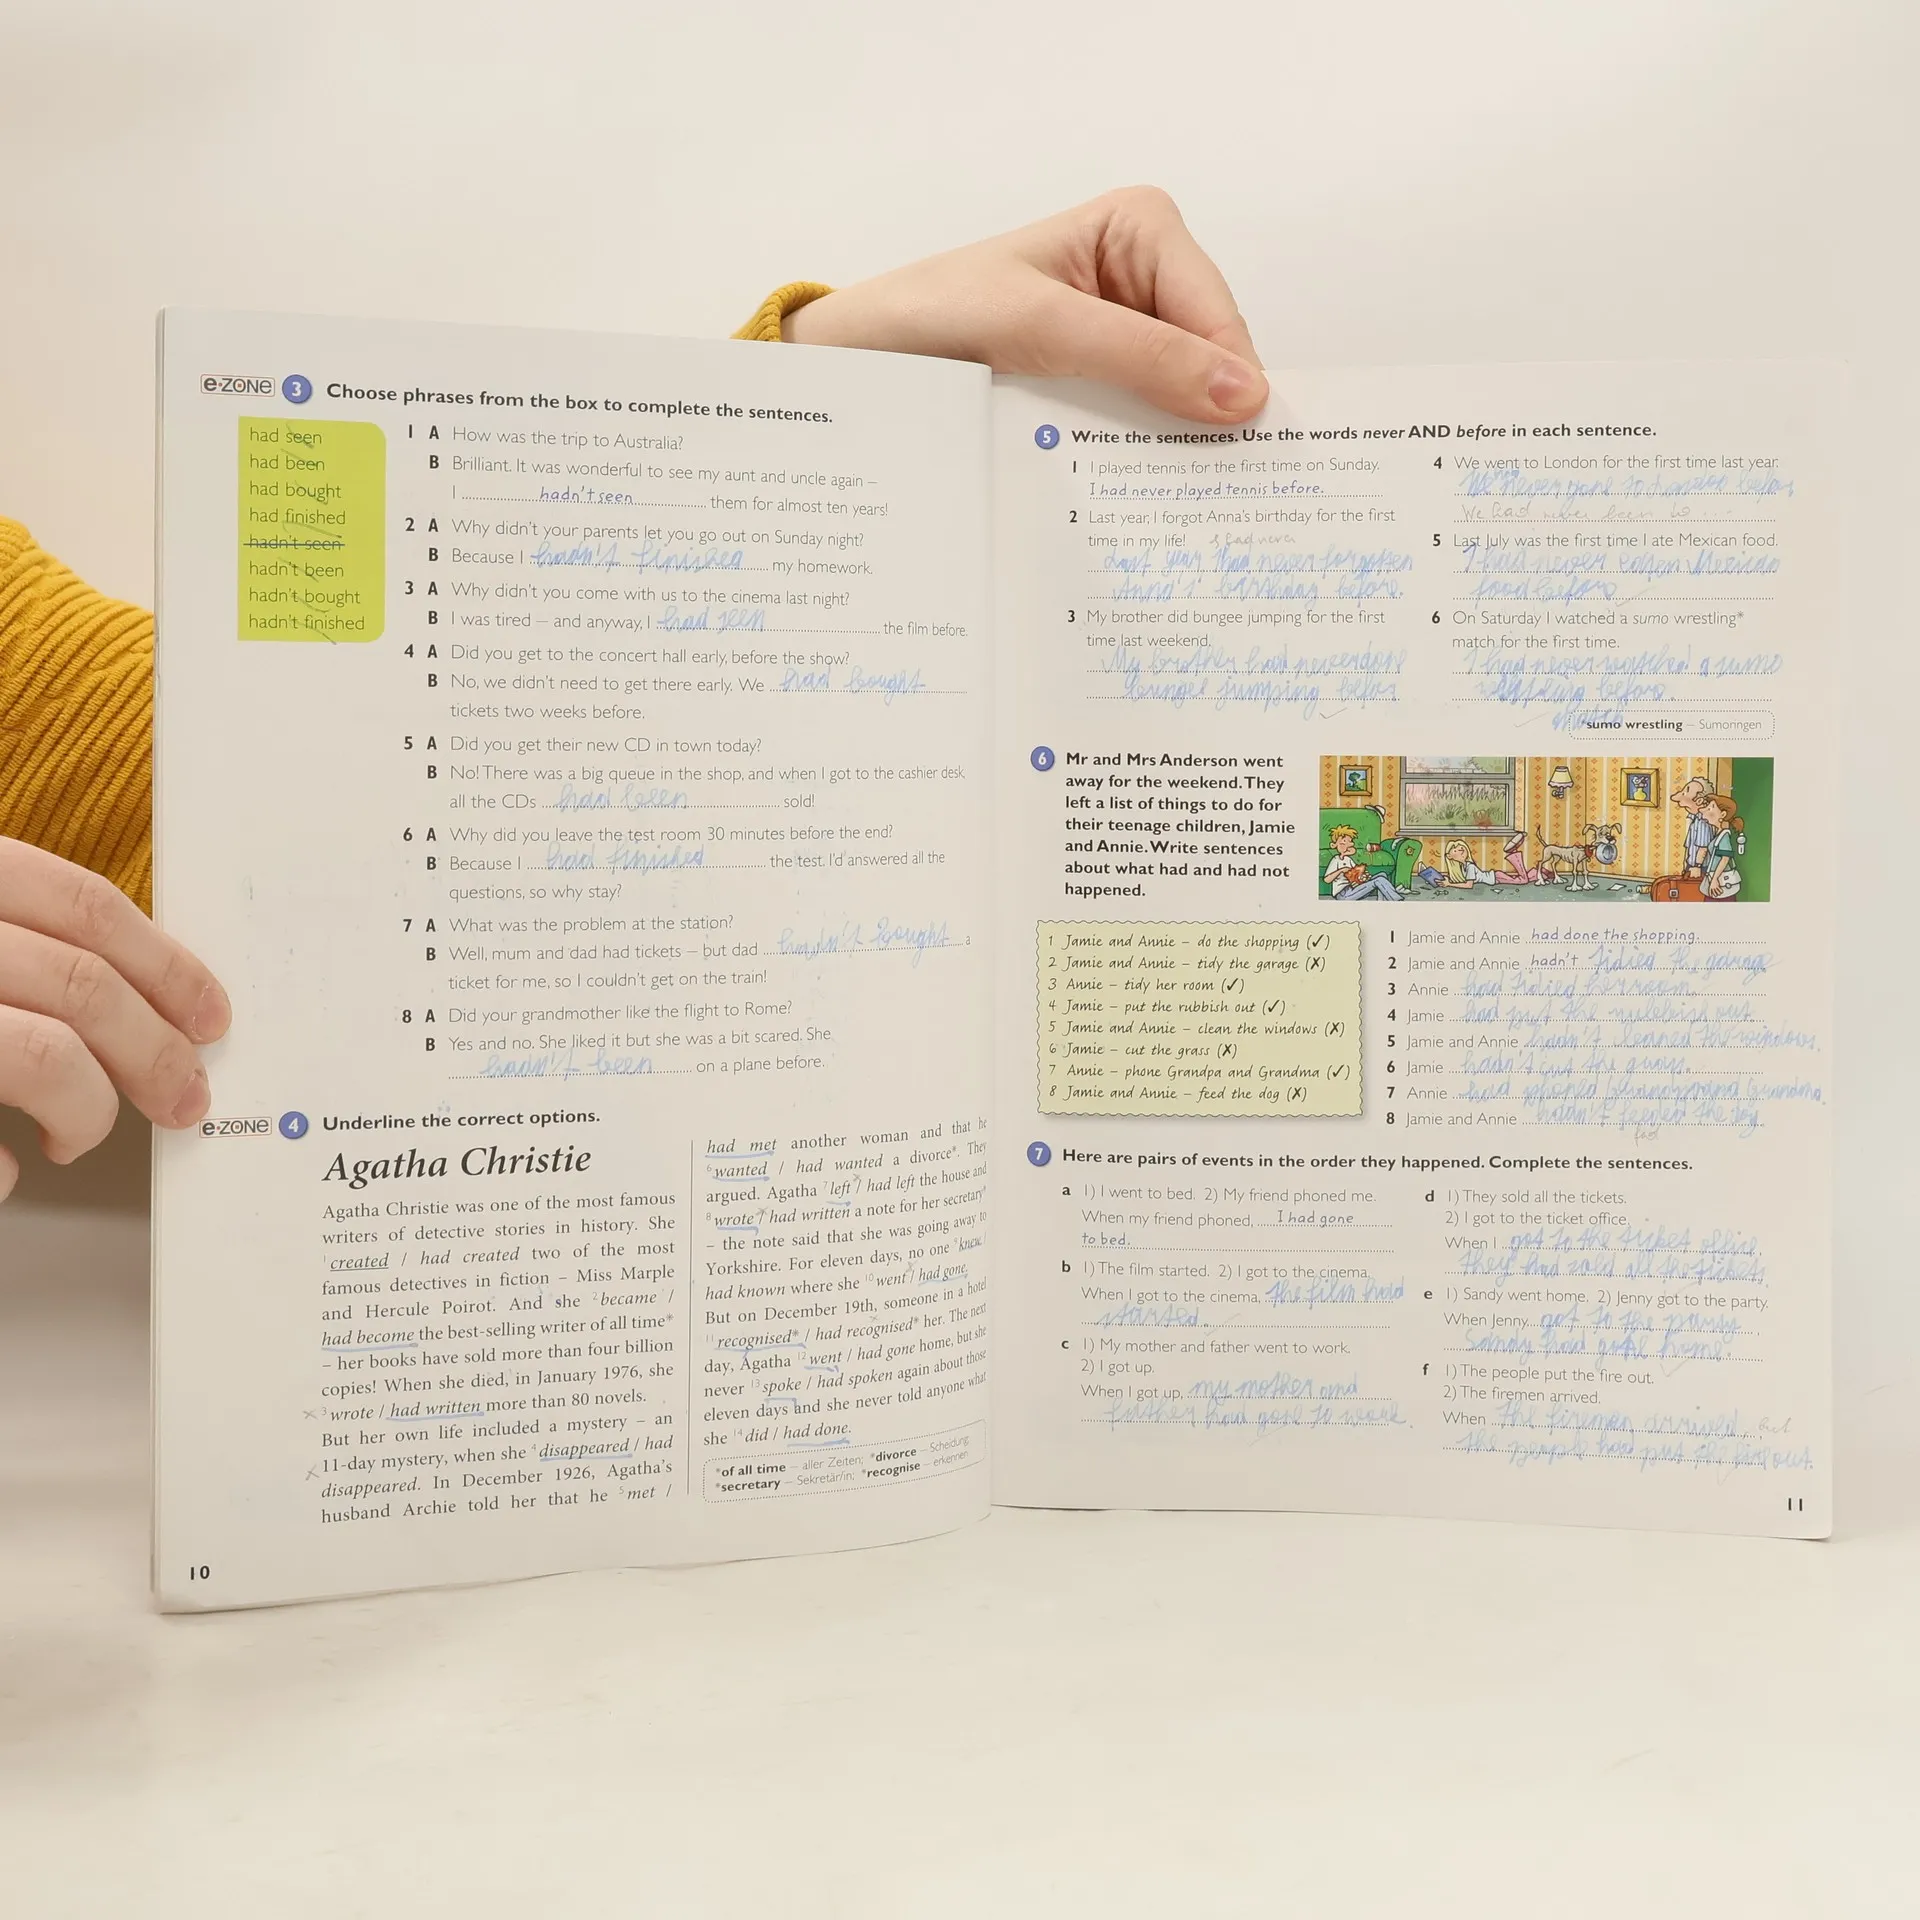 e-zone 3 Choose phrases from the box to complete the sentences.
had seen
had been
had bought
had finished
hadn't seen
hadn't been
hadn't bought
hadn't finished
1 A How was the trip to Australia?
B Brilliant. It was wonderful to see my aunt and uncle again –
I hadn't seen them for almost ten years!
2 A Why didn't your parents let you go out on Sunday night?
B Because I hadn't finished my homework.
3 A Why didn't you come with us to the cinema last night?
B I was tired – and anyway, I had seen the film before.
4 A Did you get to the concert hall early, before the show?
B No, we didn't need to get there early. We had bought
tickets two weeks before.
5 A Did you get their new CD in town today?
B No! There was a big queue in the shop, and when I got to the cashier desk
all the CDs had been sold!
6 A Why did you leave the test room 30 minutes before the end?
B Because I had finished the test. I'd answered all the
questions, so why stay?
7 A What was the problem at the station?
B Well, mum and dad had tickets – but dad hadn't bought a
ticket for me, so I couldn't get on the train!
8 A Did your grandmother like the flight to Rome?
B Yes and no. She liked it but she was a bit scared. She
hadn't been on a plane before.
e-zone 4 Underline the correct options.
Agatha Christie
Agatha Christie was one of the most famous
writers of detective stories in history. She
1 created / had created two of the most
famous detectives in fiction – Miss Marple
and Hercule Poirot. And she 2 became /
had become the best-selling writer of all time*
– her books have sold more than four billion
copies! When she died, in January 1976, she
3 wrote / had written more than 80 novels.
But her own life included a mystery – an
11-day mystery, when she 4 disappeared / had
disappeared. In December 1926, Agatha's
husband Archie told her that he 5 met /
had met another woman and that he
6 wanted / had wanted a divorce*. They
argued. Agatha 7 left / had left the house and
8 wrote / had written a note for her secretary*
– the note said that she was going away to
Yorkshire. For eleven days, no one 9 knew /
had known where she 10 went / had gone.
But on December 19th, someone in a hotel
11 recognised* / had recognised* her. The next
day, Agatha 12 went / had gone home, but she
never 13 spoke / had spoken again about those
eleven days and she never told anyone what
she 14 did / had done.
*of all time – aller Zeiten; *divorce – Scheidung;
*secretary – Sekretär/in; *recognise – erkennen
10
5 Write the sentences. Use the words never AND before in each sentence.
1 I played tennis for the first time on Sunday.
I had never played tennis before.
2 Last year, I forgot Anna's birthday for the first
time in my life! I had never
Last year I had never forgotten
Anna's birthday before.
3 My brother did bungee jumping for the first
time last weekend.
My brother had never done
bungee jumping before
4 We went to London for the first time last year.
never gone to before
We had never been to ...
5 Last July was the first time I ate Mexican food.
I had never eaten Mexican
food before
6 On Saturday I watched a sumo wrestling*
match for the first time.
I had never watched a sumo
before.
match
*sumo wrestling – Sumoringen
6 Mr and Mrs Anderson went
away for the weekend. They
left a list of things to do for
their teenage children, Jamie
and Annie. Write sentences
about what had and had not
happened.
1 Jamie and Annie – do the shopping (✓)
2 Jamie and Annie – tidy the garage (✗)
3 Annie – tidy her room (✓)
4 Jamie – put the rubbish out (✓)
5 Jamie and Annie – clean the windows (✗)
6 Jamie – cut the grass (✗)
7 Annie – phone Grandpa and Grandma (✓)
8 Jamie and Annie – feed the dog (✗)
1 Jamie and Annie had done the shopping.
2 Jamie and Annie hadn't tidied the garage
3 Annie had tidied her room.
4 Jamie had put the rubbish out.
5 Jamie and Annie hadn't cleaned the windows.
6 Jamie hadn't cut the
7 Annie had phoned Grandma.
8 Jamie and Annie hadn't feeded the dog.
fed
7 Here are pairs of events in the order they happened. Complete the sentences.
a 1) I went to bed. 2) My friend phoned me.
When my friend phoned, I had gone
to bed.
b 1) The film started. 2) I got to the cinema.
When I got to the cinema, the film had
started.
c 1) My mother and father went to work.
2) I got up.
When I got up, my mother and
father had gone to work.
d 1) They sold all the tickets.
2) I got to the ticket office.
When I got to the ticket office,
they had sold all the tickets.
e 1) Sandy went home. 2) Jenny got to the party.
When Jenny got to the party,
Sandy had gone home.
f 1) The people put the fire out.
2) The firemen arrived.
When the firemen arrived,
the people had put the fire out.
11